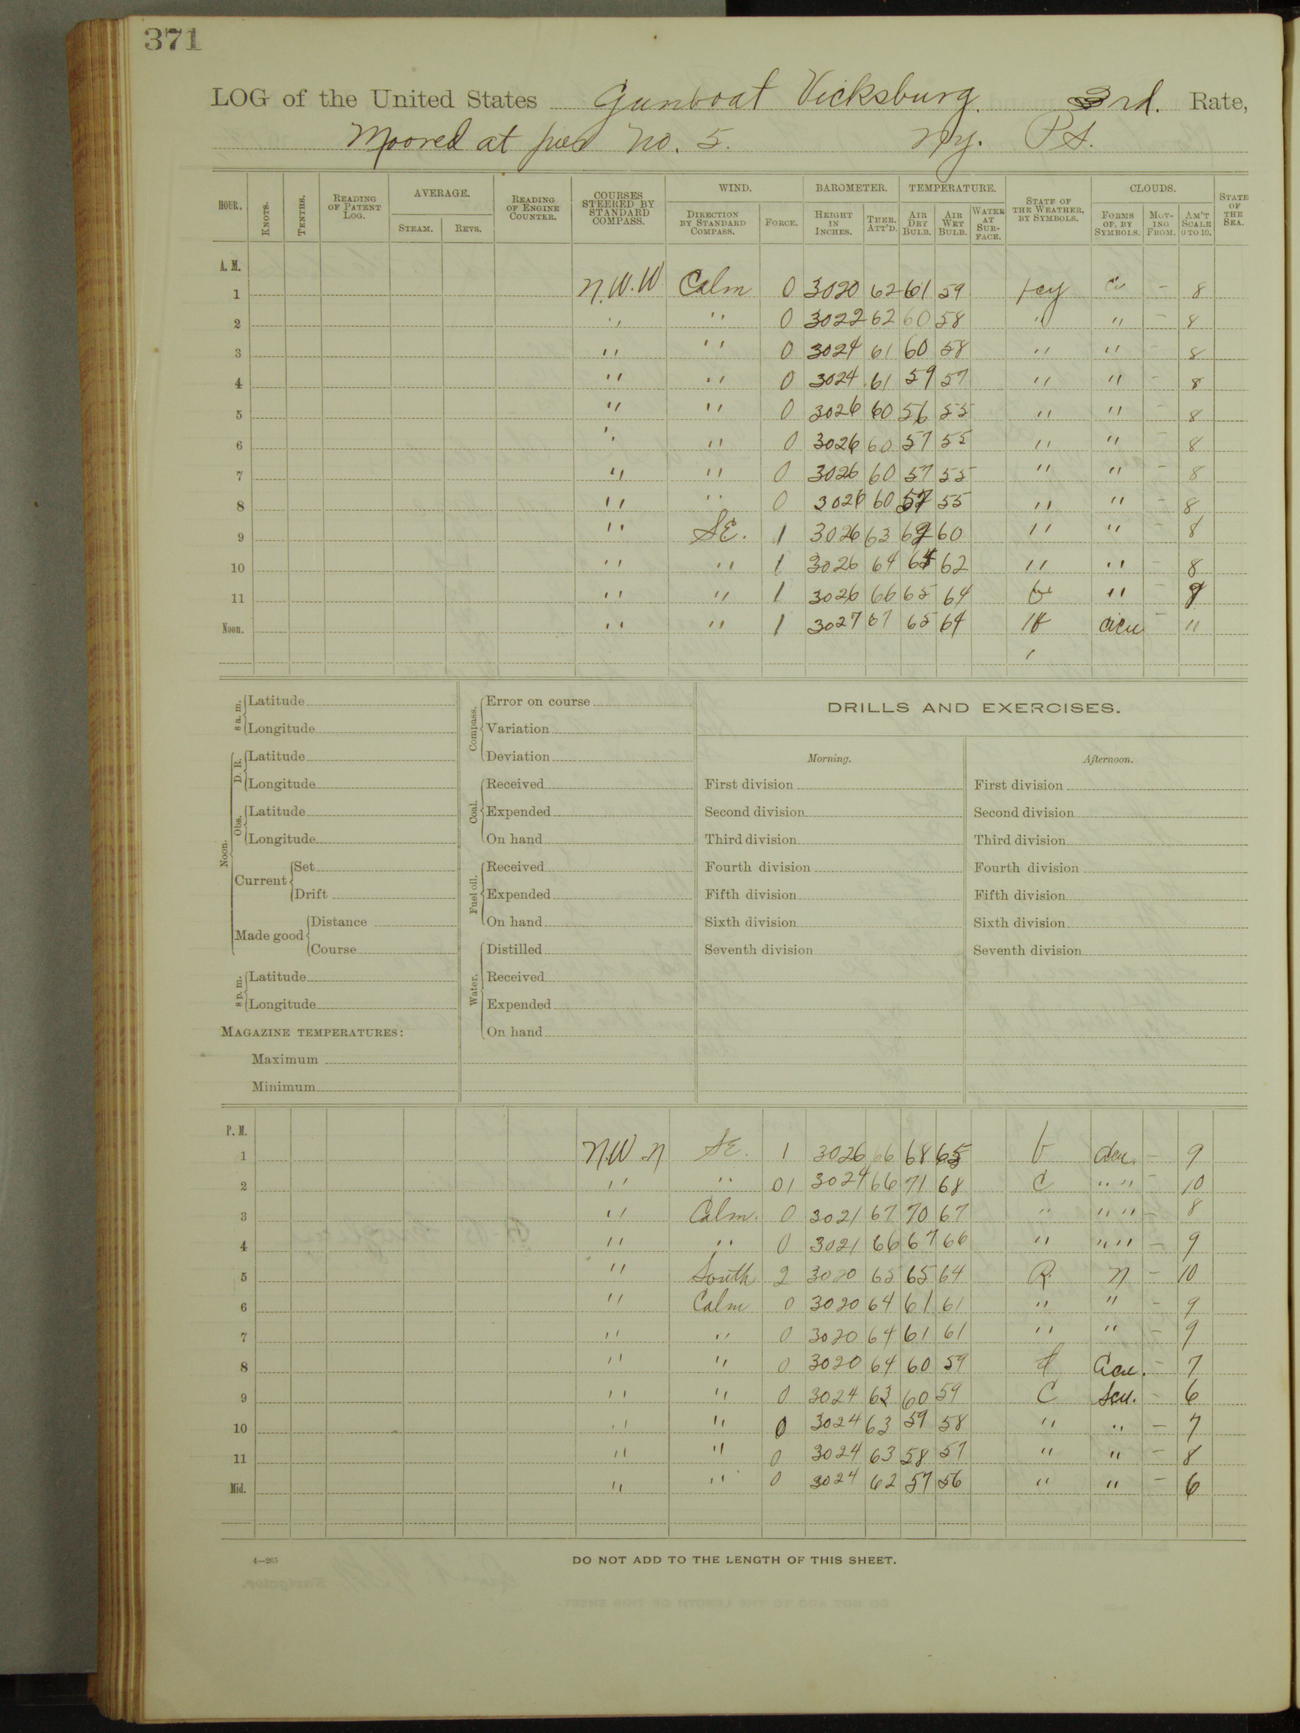 371
LOG of the United States Gunboat Vicksburg. 3rd. Rate,
Moored at pier No. 5. Ny. P.S.
HOUR. KNOTS. TENTHS. READING OF PATENT LOG. AVERAGE. STEAM. REVS. READING OF ENGINE COUNTER. COURSES STEERED BY STANDARD COMPASS. WIND. DIRECTION BY STANDARD COMPASS. FORCE. BAROMETER. HEIGHT IN INCHES. THER. ATT'D. TEMPERATURE. AIR DRY BULB. AIR WET BULB. WATER AT SURFACE. STATE OF THE WEATHER, BY SYMBOLS. CLOUDS. FORMS OF, BY SYMBOLS. MOVING FROM. AM'T SCALE 0 TO 10. STATE OF THE SEA.
A. M.
1 N.W.W Calm 0 3020 62 61 59 – 8
2 " " 0 3022 62 60 58 " " – 8
3 " " 0 3024 61 60 58 " " 8
4 " " 0 3024 61 59 57 " " – 8
5 " " 0 3026 60 56 55 " " – 8
6 " " 0 3026 60 57 55 " " – 8
7 " " 0 3026 60 57 55 " " – 8
8 " " 0 3026 60 57 55 " " – 8
9 " SE. 1 3026 63 62 60 " " – 8
10 " " 1 3026 64 64 62 " " – 8
11 " " 1 3026 66 65 64 " –
Noon. " " 1 3027 67 65 64 acu "
8 a. m. Latitude
Longitude
Noon. D. R. Latitude
Longitude
Obs. Latitude
Longitude
Current Set
Drift
Made good Distance
Course
8 p. m. Latitude
Longitude
MAGAZINE TEMPERATURES:
Maximum
Minimum
Compass. Error on course
Variation
Deviation
Coal. Received
Expended
On hand
Fuel oil. Received
Expended
On hand
Water. Distilled
Received
Expended
On hand
DRILLS AND EXERCISES.
Morning.
First division
Second division
Third division
Fourth division
Fifth division
Sixth division
Seventh division
Afternoon.
First division
Second division
Third division
Fourth division
Fifth division
Sixth division
Seventh division
P. M.
1 N.W N SE. 1 3026 66 68 65 b acu. – 9
2 " " 01 3024 66 71 68 C " " – 10
3 " Calm. 0 3021 67 70 67 " " " – 8
4 " " 0 3021 66 67 66 " " " – 9
5 " South 2 3020 65 65 64 R N – 10
6 " Calm 0 3020 64 61 61 " " – 9
7 " " 0 3020 64 61 61 " " – 9
8 " " 0 3020 64 60 59 Acu. – 7
9 " " 0 3024 63 60 59 C Scu. – 6
10 " " 0 3024 63 59 58 " " – 7
11 " " 0 3024 63 58 57 " " – 8
Mid. " " 0 3024 62 57 56 " " – 6
4—265
DO NOT ADD TO THE LENGTH OF THIS SHEET.